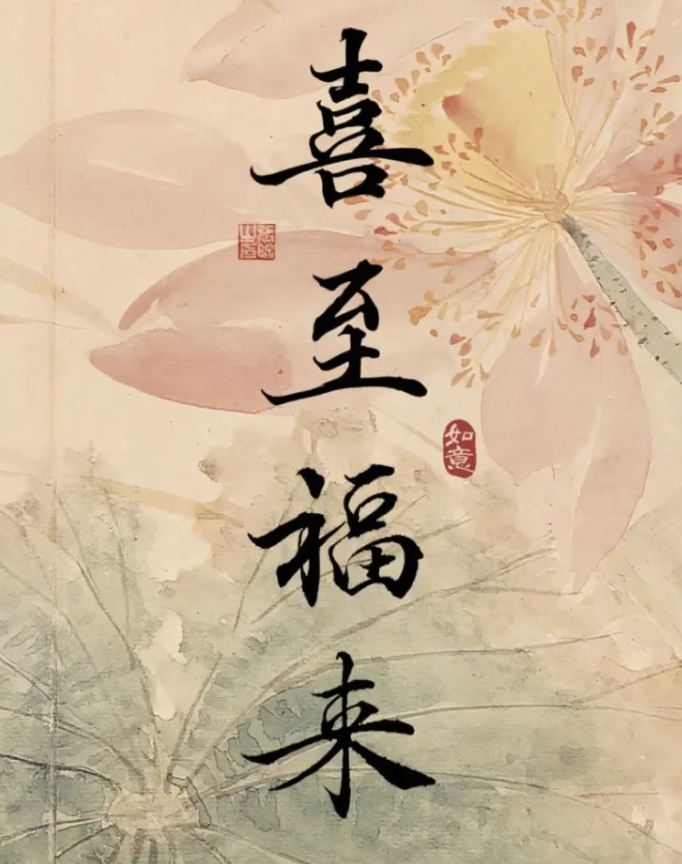 喜至福来
如意